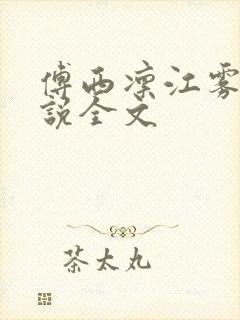 傅西凛江雾
说全文
茶太丸